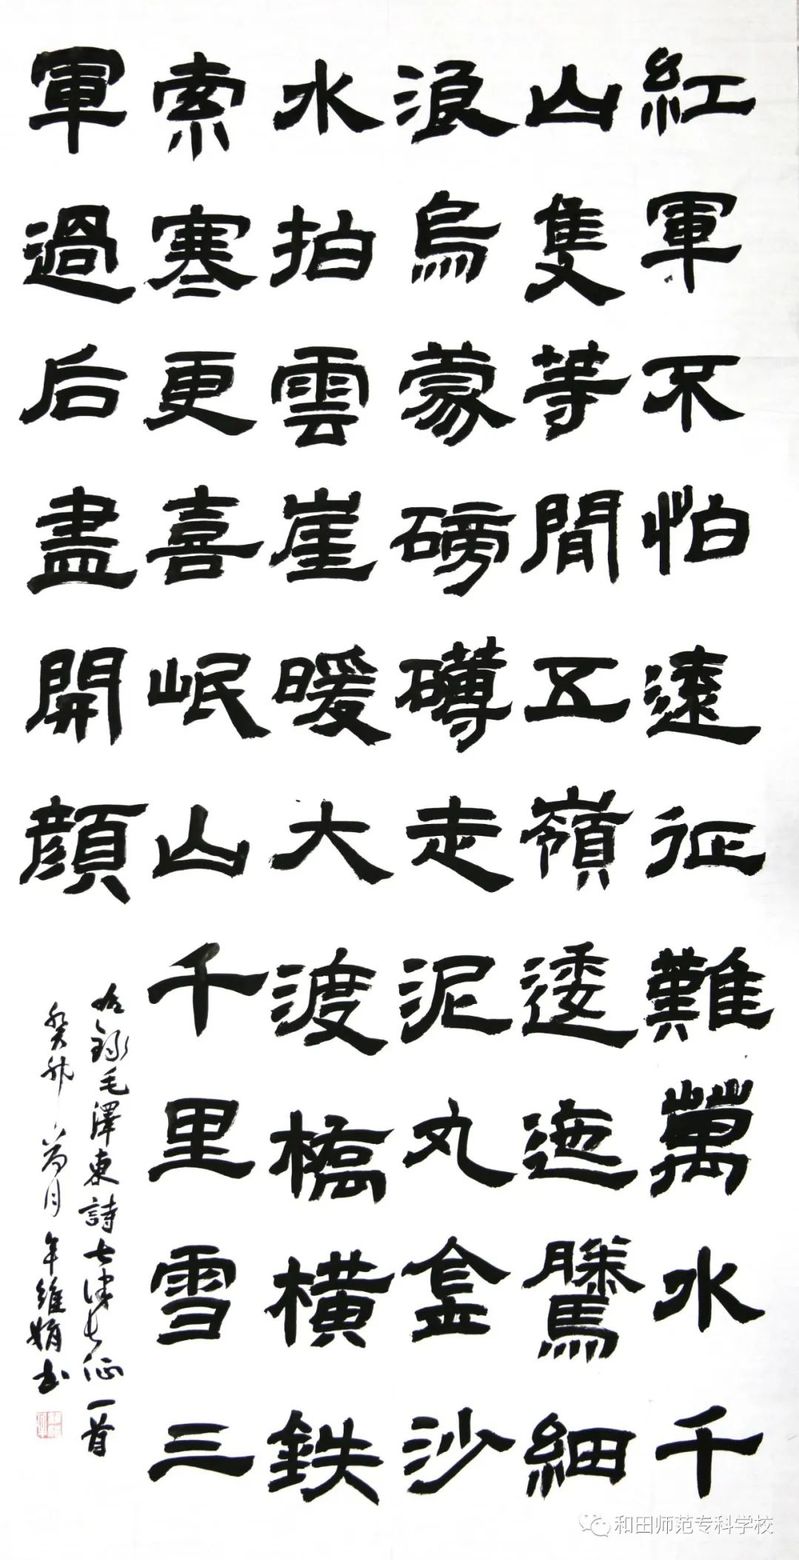 紅軍不怕遠征難萬水千
山隻等閒五嶺逶迤騰細
浪烏蒙磅礴走泥丸金沙
水拍雲崖暖大渡橋橫鉄
索寒更喜岷山千里雪三
軍過后盡開顔
右錄毛澤東詩七律長征一首
癸卯月維娟書
和田师范专科学校